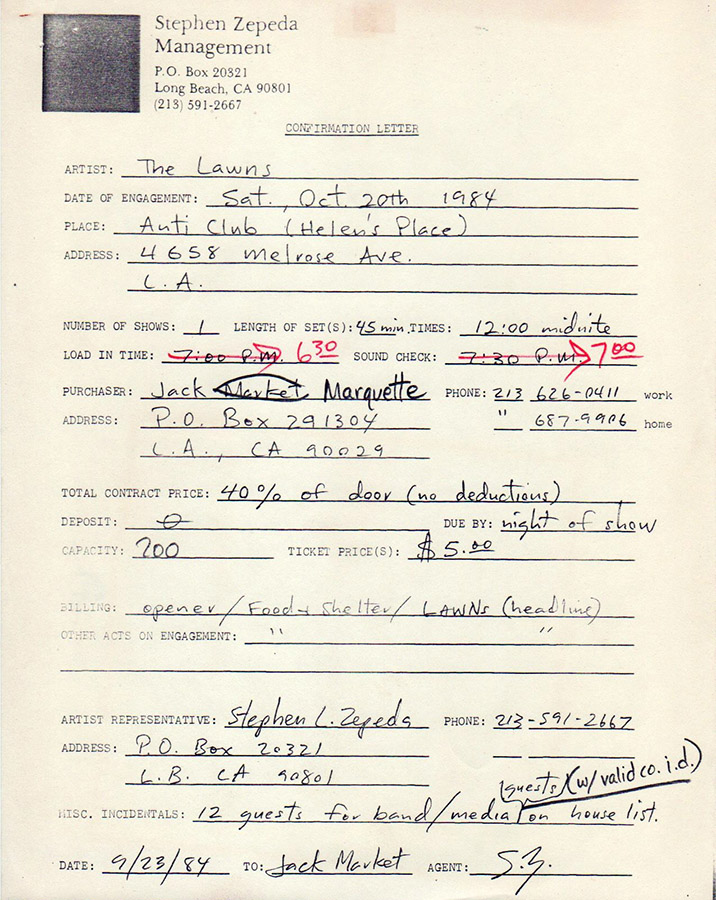 Stephen Zepeda
Management
P.O. Box 20321
Long Beach, CA 90801
(213) 591-2667
CONFIRMATION LETTER
ARTIST: The Lawns
DATE OF ENGAGEMENT: Sat., Oct. 20th 1984
PLACE: Anti Club (Helen's Place)
ADDRESS: 4658 Melrose Ave.
L.A.
NUMBER OF SHOWS: 1 LENGTH OF SET(S): 45 min. TIMES: 12:00 midnite
LOAD IN TIME: 7:00 P.M. 6 30 SOUND CHECK: 7:30 P.M. 7 00
PURCHASER: Jack Market Marquette PHONE: 213 626-0411 work
ADDRESS: P.O. Box 291304 " 687-9906 home
L.A., CA 90029
TOTAL CONTRACT PRICE: 40% of door (no deductions)
DEPOSIT: 0 DUE BY: night of show
CAPACITY: 200 TICKET PRICE(S): $5.00
BILLING: opener / Food & Shelter / LAWNS (headline)
OTHER ACTS ON ENGAGEMENT: " "
ARTIST REPRESENTATIVE: Stephen L. Zepeda PHONE: 213-591-2667
ADDRESS: P.O. Box 20321
L.B. CA 90801
(guests) (w/ valid co. i.d.)
MISC. INCIDENTALS: 12 guests for band/media on house list.
DATE: 9/23/84 TO: Jack Market AGENT: S.Z.